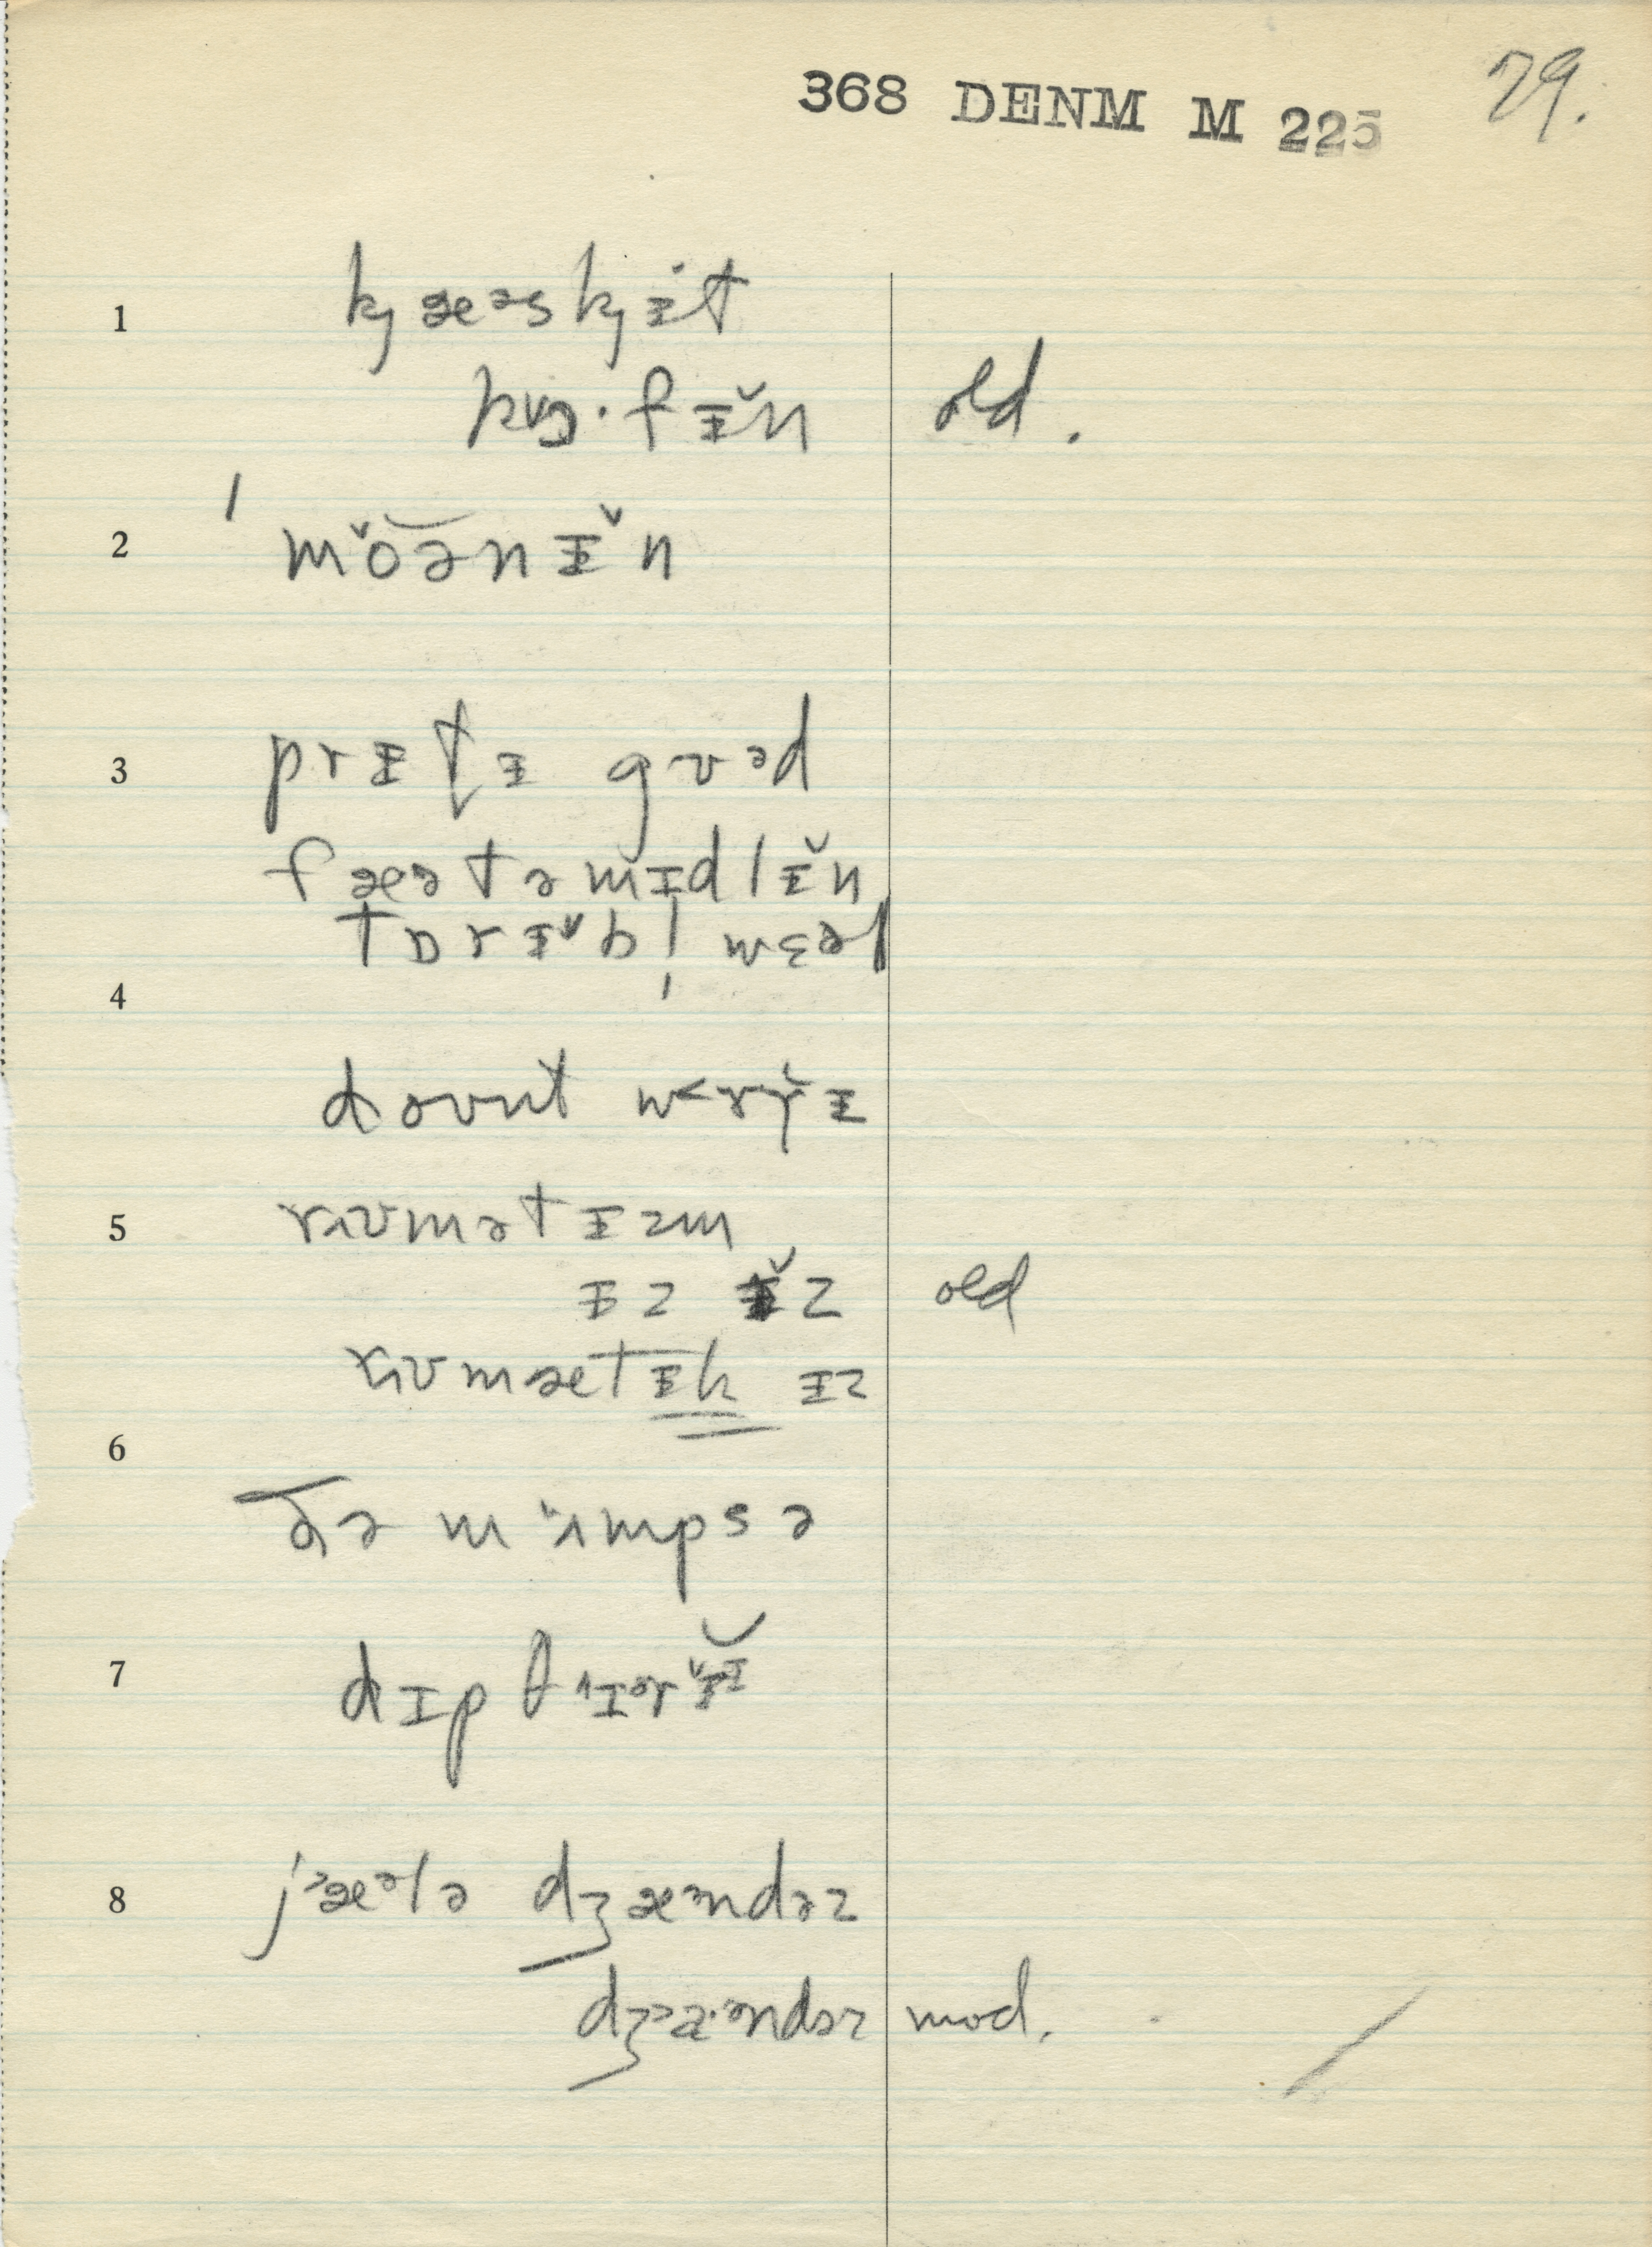 368 DENM M 225 79.
1 kj æəskjɨt
kɒ·fɨ̌n old.
2 ' mǒə̆nɨ̌n
3 prɨt̬ɨ gʊəd
fæətəmɨdlɨ̌n
tɒrɨ̌bl̩ wɛəl
4
doʊnt wɜrɨ
5 rʊmətɪzm
ɨz ɨ̌z old
rʊmætɨk ɨz
6
ðə mʌmpsə
7 dɪpθɪərɨ
8 jæələ dʒændəz
dʒændəz mod.